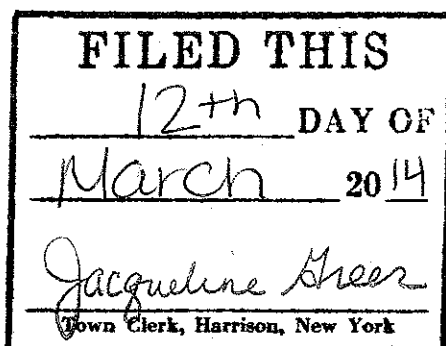 FILED THIS
12th DAY OF
March 2014
Jacqueline Greer
Town Clerk, Harrison, New York